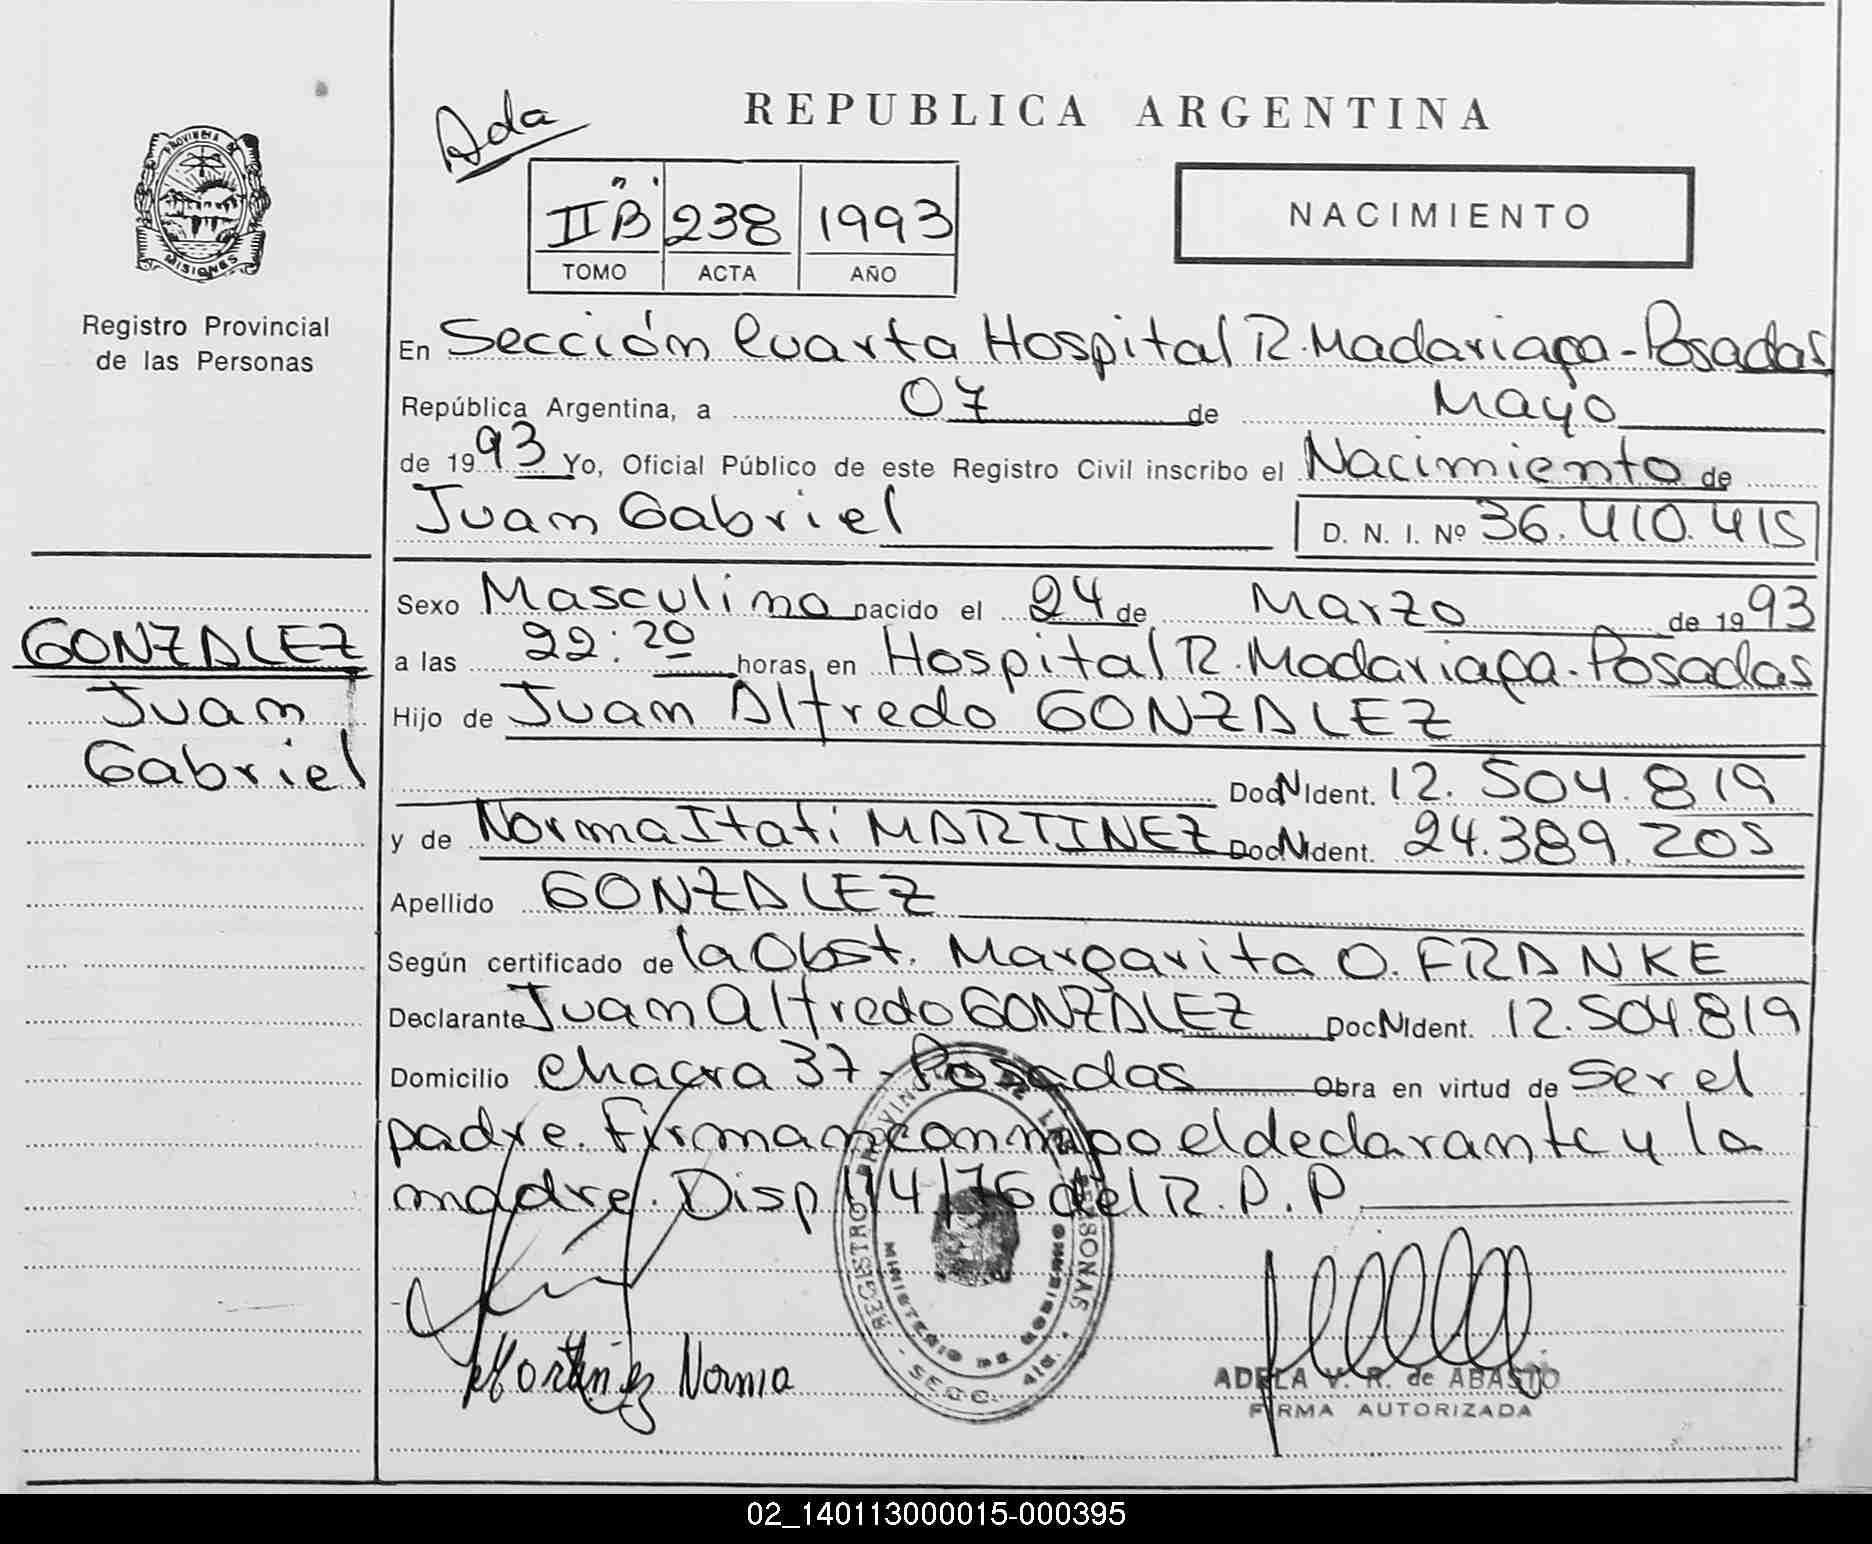 Ada
REPUBLICA ARGENTINA
IIB 238 1993
TOMO ACTA AÑO
NACIMIENTO
PROVINCIA DE
MISIONES
Registro Provincial
de las Personas
En Sección Cuarta Hospital R. Madariaga - Posadas
República Argentina, a 07 de Mayo
de 1993 Yo, Oficial Público de este Registro Civil inscribo el Nacimiento de
Juan Gabriel D. N. I. Nº 36.410.415
Sexo Masculino nacido el 24 de Marzo de 1993
a las 22:20 horas, en Hospital R. Madariaga - Posadas
Hijo de Juan Alfredo GONZALEZ
Doc N Ident. 12.504.819
y de Norma Itati MARTINEZ Doc N Ident. 24.389.205
Apellido GONZALEZ
Según certificado de la Obst. Margarita O. FRANKE
Declarante Juan Alfredo GONZALEZ Doc N Ident. 12.504.819
Domicilio Chacra 37 - Posadas Obra en virtud de Ser el
padre. Firman conmigo el declarante y la
madre. Disp 114/76 del R.P.P
GONZALEZ
Juan
Gabriel
Martinez Norma
REGISTRO PROVINCIAL DE LAS PERSONAS
MINISTERIO DE GOBIERNO
SECC. 4ta.
ADELA V. R. de ABASTO
FIRMA AUTORIZADA
02_140113000015-000395